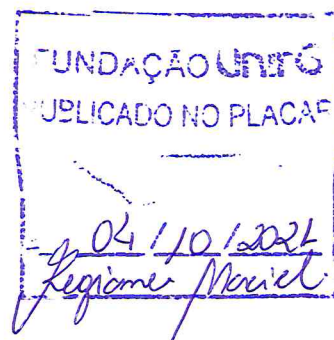 FUNDAÇÃO UnirG
PUBLICADO NO PLACAR
04/10/2021
Regiane Maciel